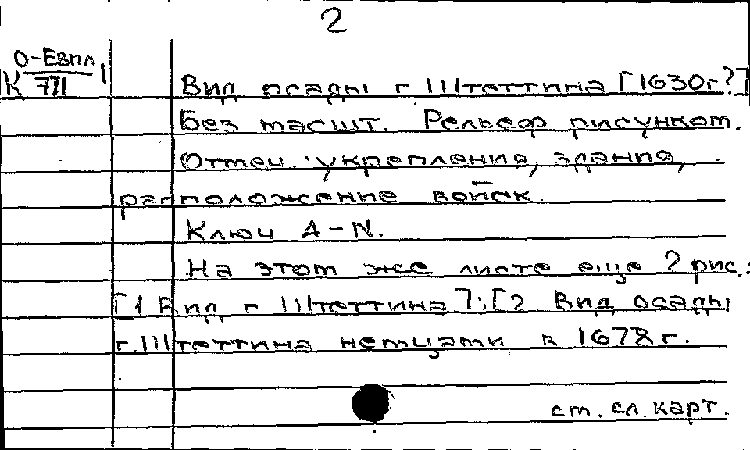 2
О-Евпл
К 771 1
Вид осады г. Штеттина [1630г?]
Без масшт. Рельеф рисунком.
Отмеч. укрепления, здания,
расположение войск.
Ключ A-N.
На этом же листе еще 2 рис.:
[1 Вид г. Штеттина]; [2 Вид осады
г. Штеттина немцами в 1678 г.
см. сл. карт.